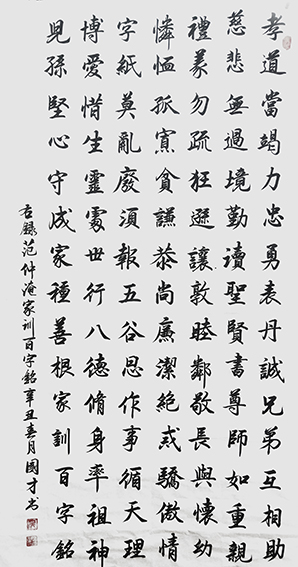 孝道當竭力忠勇表丹誠兄弟互相助
慈悲無過境勤讀聖賢書尊師如重親
禮義勿疏狂遜讓敦睦鄰敬長與懷幼
憐恤孤寡貧謙恭尚廉潔絕戒驕傲情
字紙莫亂廢須報五谷恩作事循天理
博愛惜生靈處世行八德脩身率祖神
兒孫堅心守成家種善根家訓百字銘
右錄范仲淹家訓百字銘辛丑春月國才書